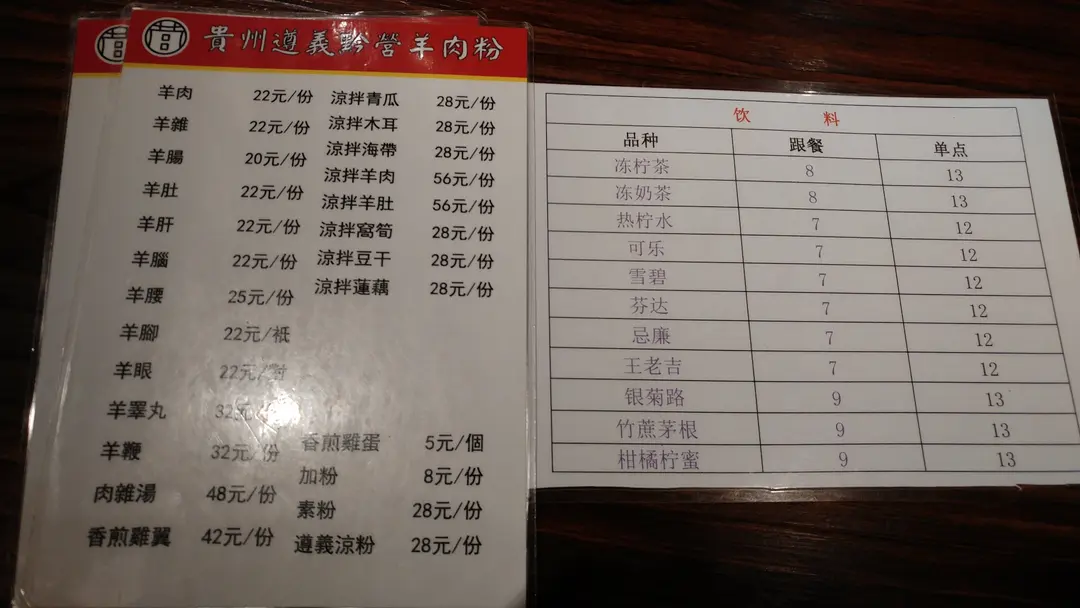 貴州遵義黔營羊肉粉
羊肉 22元/份
羊雜 22元/份
羊腸 20元/份
羊肚 22元/份
羊肝 22元/份
羊腦 22元/份
羊腰 25元/份
羊腳 22元/祇
羊眼 22元/對
羊睪丸 32元/份
羊鞭 32元/份
肉雜湯 48元/份
香煎雞翼 42元/份
涼拌青瓜 28元/份
涼拌木耳 28元/份
涼拌海帶 28元/份
涼拌羊肉 56元/份
涼拌羊肚 56元/份
涼拌窩筍 28元/份
涼拌豆干 28元/份
涼拌蓮藕 28元/份
香煎雞蛋 5元/個
加粉 8元/份
素粉 28元/份
遵義涼粉 28元/份
饮料
品种 跟餐 单点
冻柠茶 8 13
冻奶茶 8 13
热柠水 7 12
可乐 7 12
雪碧 7 12
芬达 7 12
忌廉 7 12
王老吉 7 12
银菊路 9 13
竹蔗茅根 9 13
柑橘柠蜜 9 13